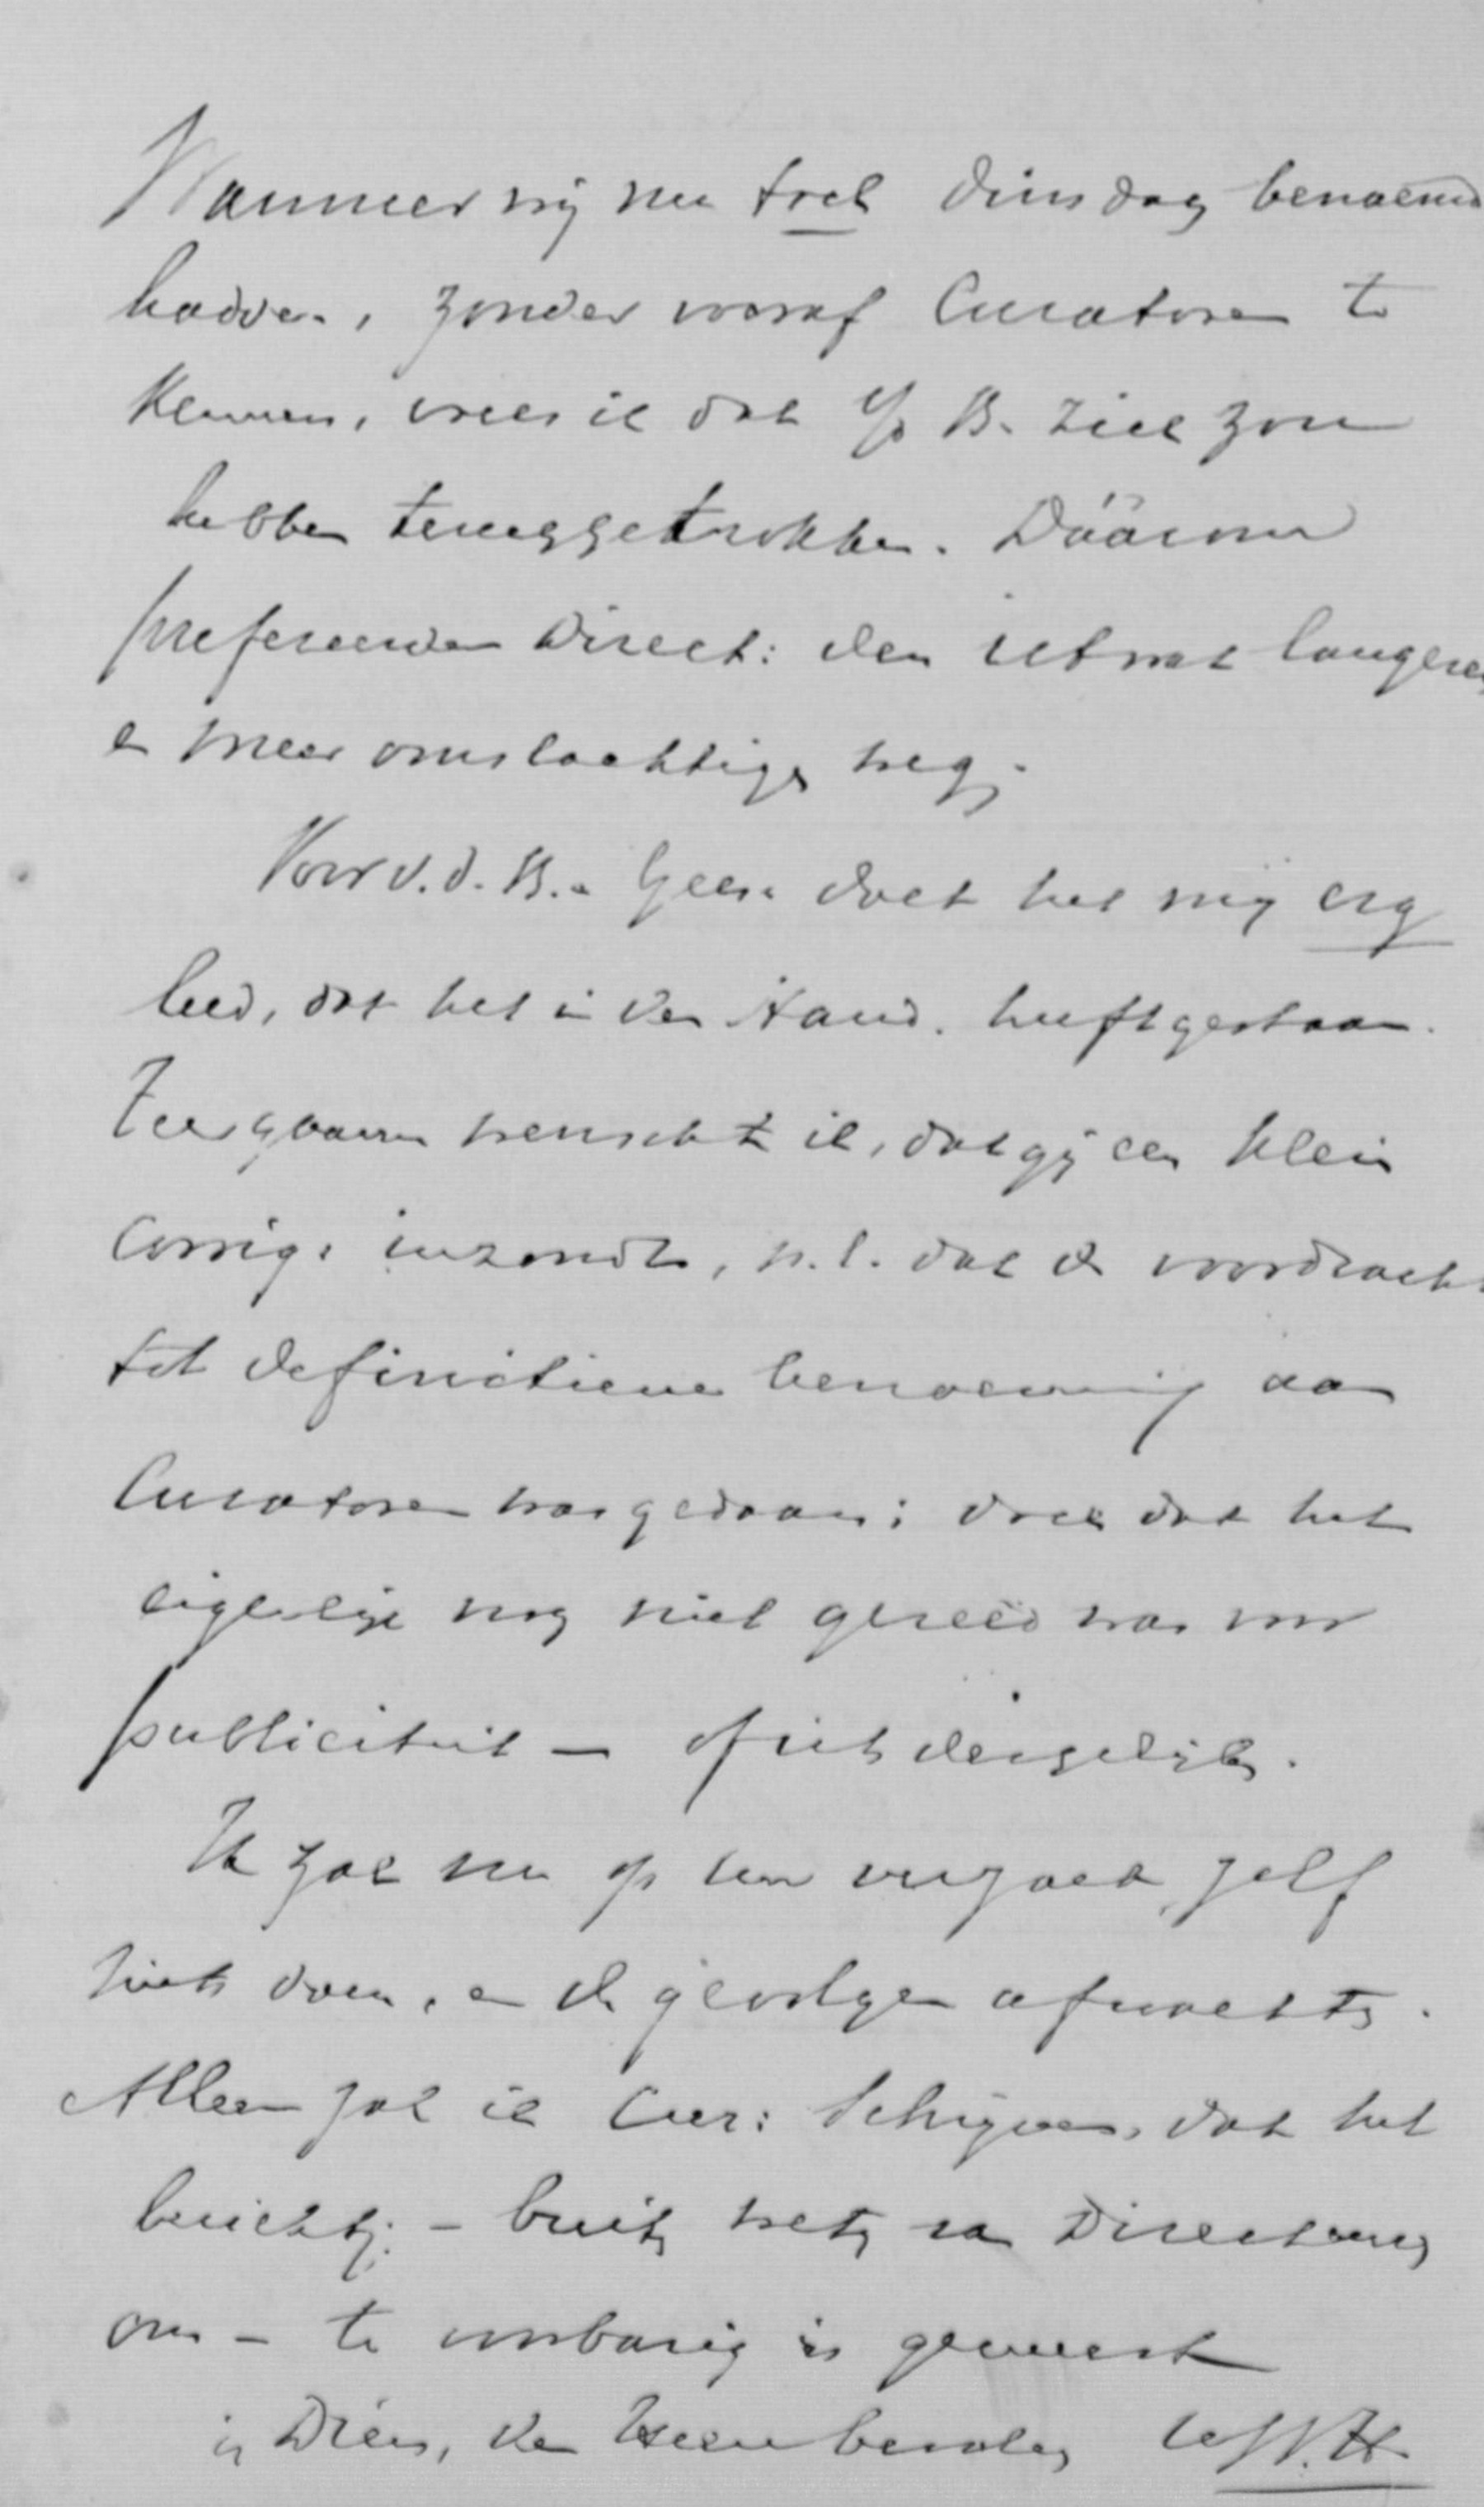 Wanneer wij nu toch Dinsdag benoemd
hadden, zonder vooraf Curatoren te
kennen, vrees ik dat Gr B. zich zou
hebben teruggetrokken. Dáárom
prefereerden Direct: den ietwat langeren
en meer omslachtigen weg.
Voor v. d. B. Geest doet het mij erg
leed, dat het in den Stand. heeft gestaan.
Zeer gaarne wenscht ik, dat gij een klein
Corrig. inzondt, n.l. dat de voordracht
tot definitieve benoeming aan
Curatoren was gedaan; doch dat het
eigenlijk nog niet gereed was voor
publiciteit – of iets dergelijks.
Ik zal nu op uw verzoek zelf
niets doen, en de gevolgen afwachten.
Alleen zal ik Cur: schrijven, dat het
bericht – buiten weten van Directeuren
om – te voorbarig is geweest
in Dien, den Heere bevolen